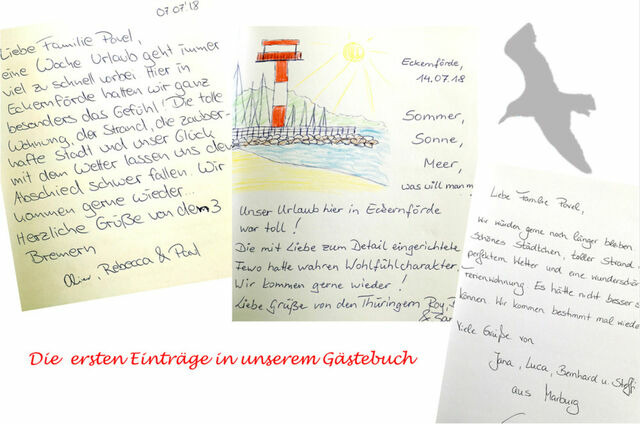 07.07.'18
Liebe Familie Pavel,
eine Woche Urlaub geht immer
viel zu schnell vorbei. Hier in
Eckernförde hatten wir ganz
besonders das Gefühl! Die tolle
Wohnung, der Strand, die zauber-
hafte Stadt und unser Glück
mit dem Wetter lassen uns den
Abschied schwer fallen. Wir
kommen gerne wieder...
Herzliche Grüße von den 3
Bremern
Rebecca & Paul
Eckernförde,
14.07.18
Sommer,
Sonne,
Meer,
was will man m
Unser Urlaub hier in Eckernförde
war toll!
Die mit Liebe zum Detail eingerichtete
Fewo hatte wahren Wohlfühlcharakter.
Wir kommen gerne wieder!
Liebe Grüße von den Thüringern Roy,
Liebe Familie Pavel,
wir würden gerne noch länger bleiben
Schönes Städtchen, toller Strand
perfektem Wetter und eine wunderschö
Ferienwohnung. Es hätte nicht besser s
können. Wir kommen bestimmt mal wiede
Viele Grüße von
Jana, Luca, Bernhard u. Steffi
aus Marburg
Die ersten Einträge in unserem Gästebuch